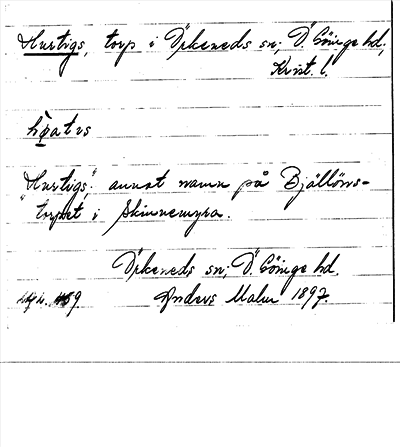 Hurtigs, torp i Örkeneds sn; Ö. Göinge hd,
Krist. l.
"Hurtigs" annat namn på Bjällöns-
torpet i Skinnemyra.
Örkeneds sn; Ö. Göinge hd.
Anders Malm 1897.